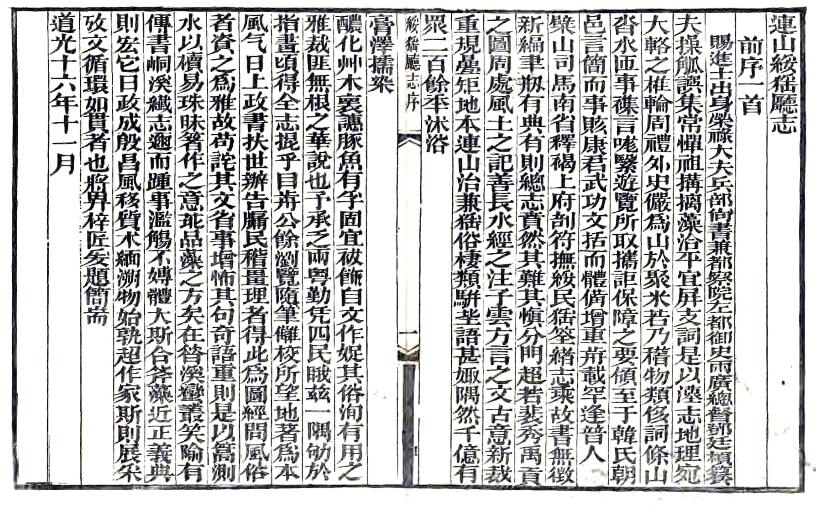 連山綏猺廳志
前序一首
賜進士出身榮祿大夫兵部尙書兼都察院左都御史兩廣總督鄧廷楨譔
夫操觚誤集常憚祖搆摛藻洽平宜屏支詞是以漢志地理宛
大輅之椎輪周禮外史儼爲山於聚米若乃稽物類侈詞條山
沓水匝事襍言嚨繄遊覽所取攜詎保障之要領至于韓氏朝
邑言簡而事賅康君武功文括而體備增重卉載罕逢晉人
檗山司馬南省釋褐上府剖符撫綏民猺筌緒志乘故書無徵
新編聿刱有典有則總志賁然其難其愼分明超若裴秀禹貢
之圖周處風土之記善長水經之注子雲方言之文古意新裁
重規疊矩地本連山治兼猺俗棲類駢坒語甚娵隅然千億有
眾二百餘年沐浴
綏猺廳志序
一
膏澤擩染
醲化艸木褏譓豚魚有孚固宜祓飾自文作娖其俗洵有用之
雅裁匪無根之華說也予承之兩粵勤凭四民睋茲一隅劬於
指畫頃得全志提乎目歬公餘瀏覽隨筆讎校所望地著爲本
風气日上政書扶世辦告牖民稽畺理者得此爲圖經問風俗
者資之爲雅故苟詫其文省事增怖其句奇語重則是以蠡測
水以櫝易珠昧箸作之意玼品藻之方矣在昔溪蠻叢笑喻有
傳書峒溪纖志迾而踵事濫觴不嫥體大斯合斧藻近正義典
則宏它日政成殷昌風移質朩緬溯物始孰超作家斯則展釆
攷文循環如貫者也將畀梓匠爰題簡耑
道光十六年十一月